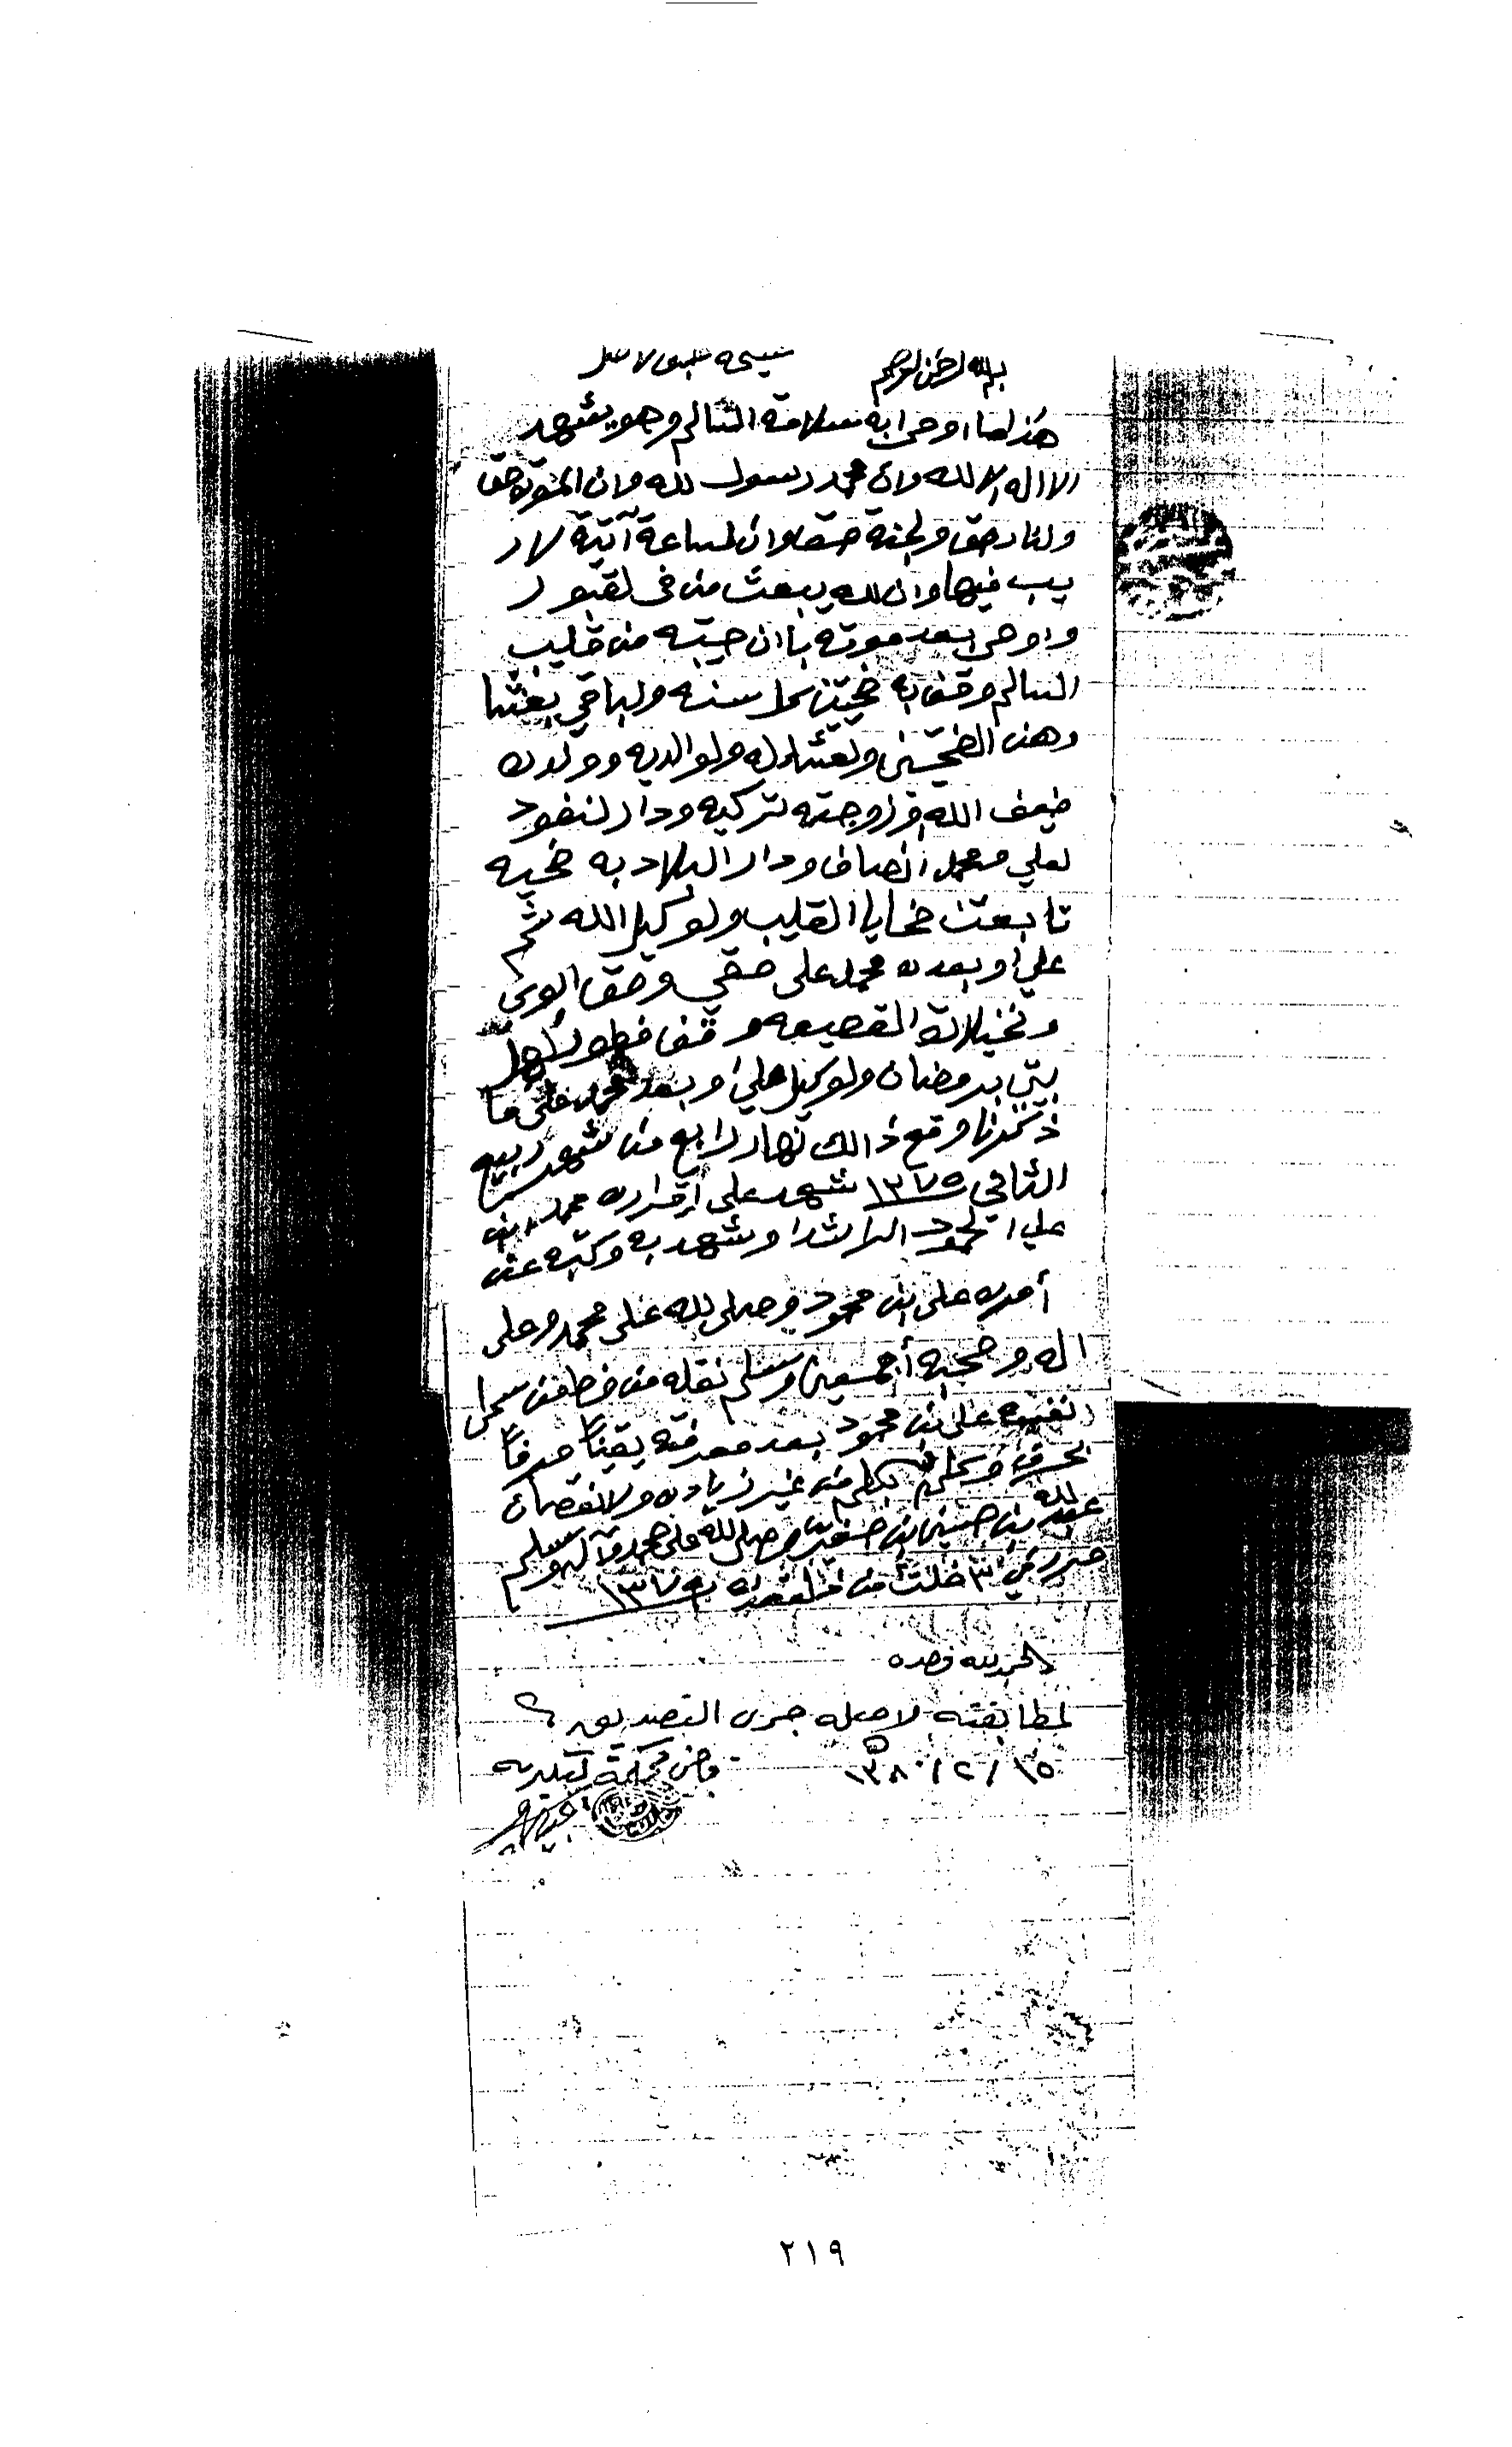 بسم الله الرحمن الرحيم
هذا ما اوصى به سلامة السالم وهو يشهد
الا اله الا الله وان محمد رسول الله وان الموت حق
والنار حق والجنة حق وان الساعة آتية لا ر
يب فيها وان الله يبعث من في القبور
واوصى بعد موته باان حبته من قليب
السالم وقف به ضحيتين كل سنه والباقي بعشا
وهن الضحيتين والعشا له ولوالديه وولده
ضيف الله وزاوجته تركيه ودار النفود
لعلي ومحمد انصاف ودار البلاد به ضحيه
تابعت ضحايا القليب والوكيل الله ثم
علي وبعده محمد على حقي وحق ابوي
ونخيلاة القصيعه وقف فطور لأهل
بيتي برمضان والوكيل علي وبعد محمد على ما
ذكرنا وقع ذالك نهار رابع من شهر ربيع
الثاني ١٣٧٥ شهد على اقراره محمد ابن
علي الحمود الراشد وشهد به وكتبه عن
أمره علي ابن محمود وصلى الله على محمد وعلى
اله وصحبه أجمعين وسلم نقله من خط من سما
نفسه علي ابن محمود بعد معرفته يقيناً حرفاً
بحرف وكلم بكلم من غير زياده ولا نقصان
عبد الله بن حسين ابن وصلى الله على محمد وآله وسلم
حرر في ٣ خلت من القعده ١٣٧٥
الحمد لله وحده
لمطابقته لاصله جرى التصديق
١٥ / ٢ / ١٣٨٠ قاضي محكمة البدريه
٢١٩